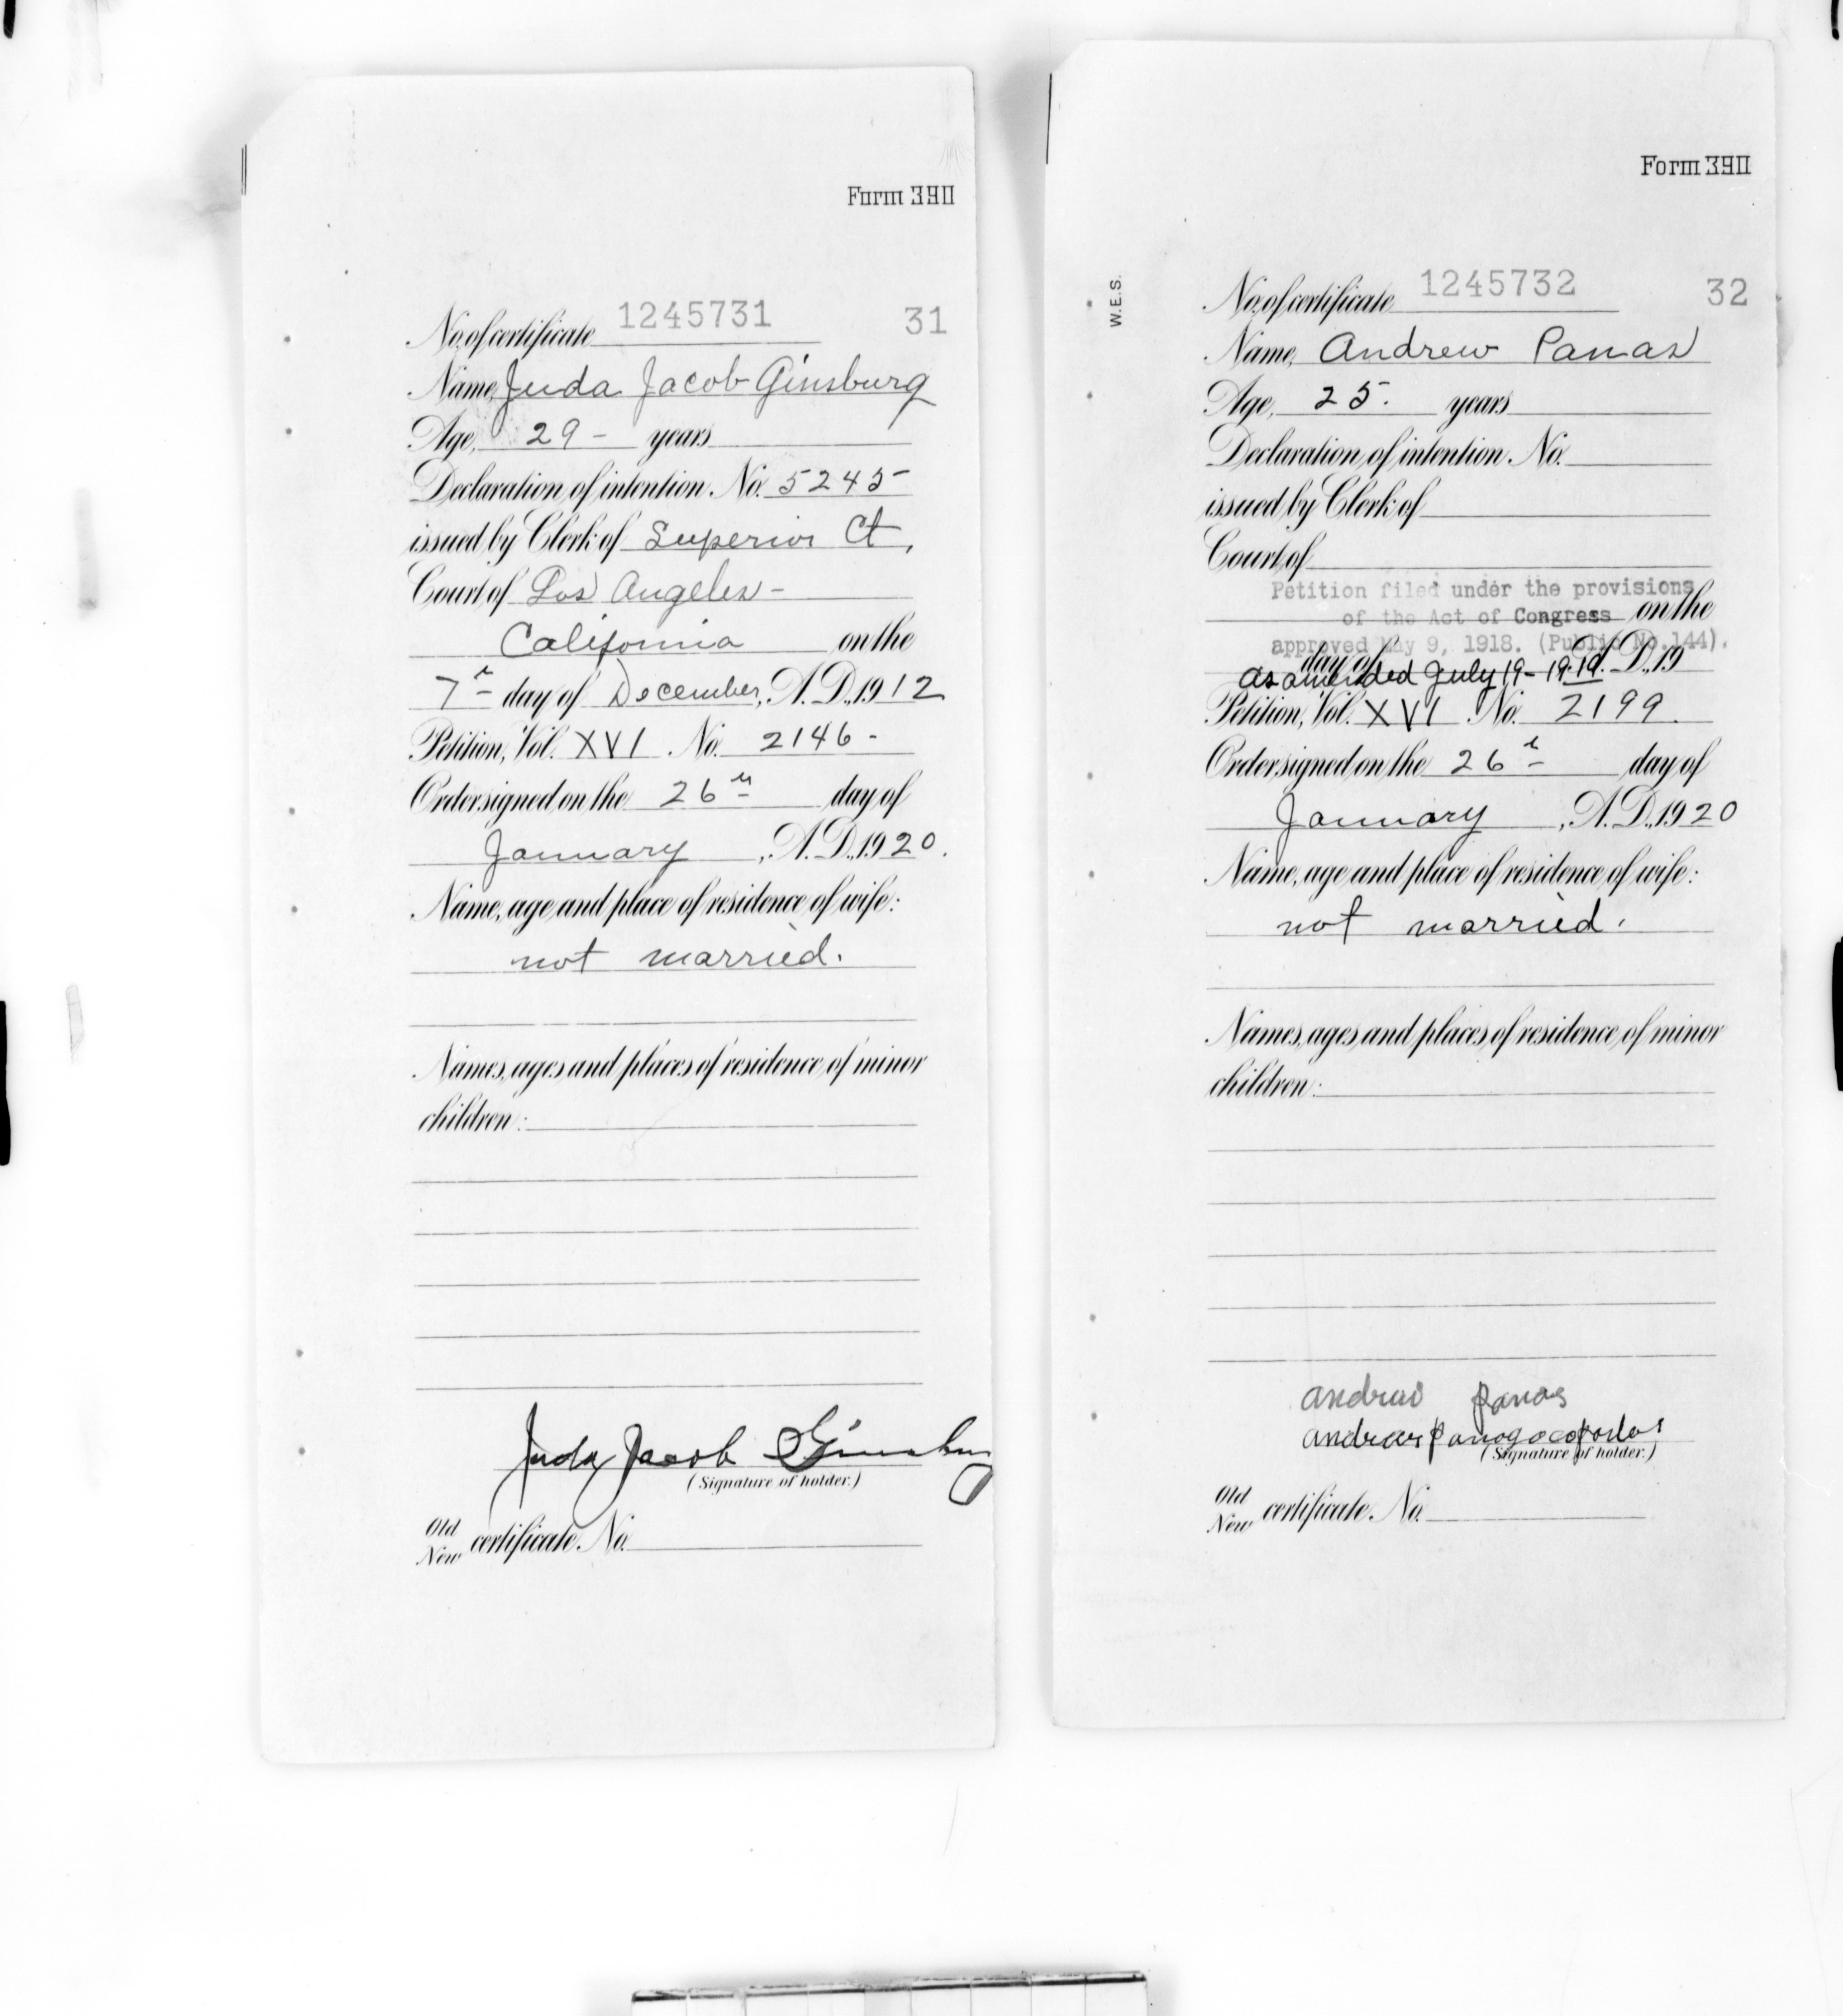 Form 390
No. of certificate 1245731 31
Name, Juda Jacob Ginsburg
Age, 29 - years
Declaration of intention No. 5245
issued by Clerk of Superior Ct,
Court of Los Angeles -
California on the
7th day of December, A.D., 1912
Petition, Vol. XVI No. 2146 -
Order signed on the 26th day of
January, A.D., 1920.
Name, age and place of residence of wife:
not married.
Names, ages and places of residence of minor
children:
Juda Jacob Ginsburg
(Signature of holder.)
Old
New certificate No.
Form 390
W.E.S.
No. of certificate 1245732 32
Name, Andrew Panas
Age, 25. years
Declaration of intention No.
issued by Clerk of
Court of
Petition filed under the provisions
of the Act of Congress on the
approved May 9, 1918. (Public No. 144).
day of A.D., 19
as amended July 19-1919.
Petition, Vol. XVI No. 2199.
Order signed on the 26th day of
January, A.D., 1920
Name, age and place of residence of wife:
not married.
Names, ages and places of residence of minor
children:
Panas
(Signature of holder.)
Old
New certificate No.